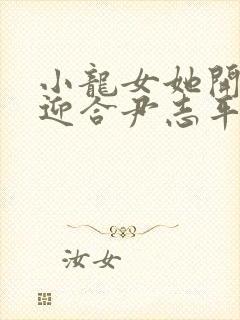 小龍女她開
迎合尹志平
汝女